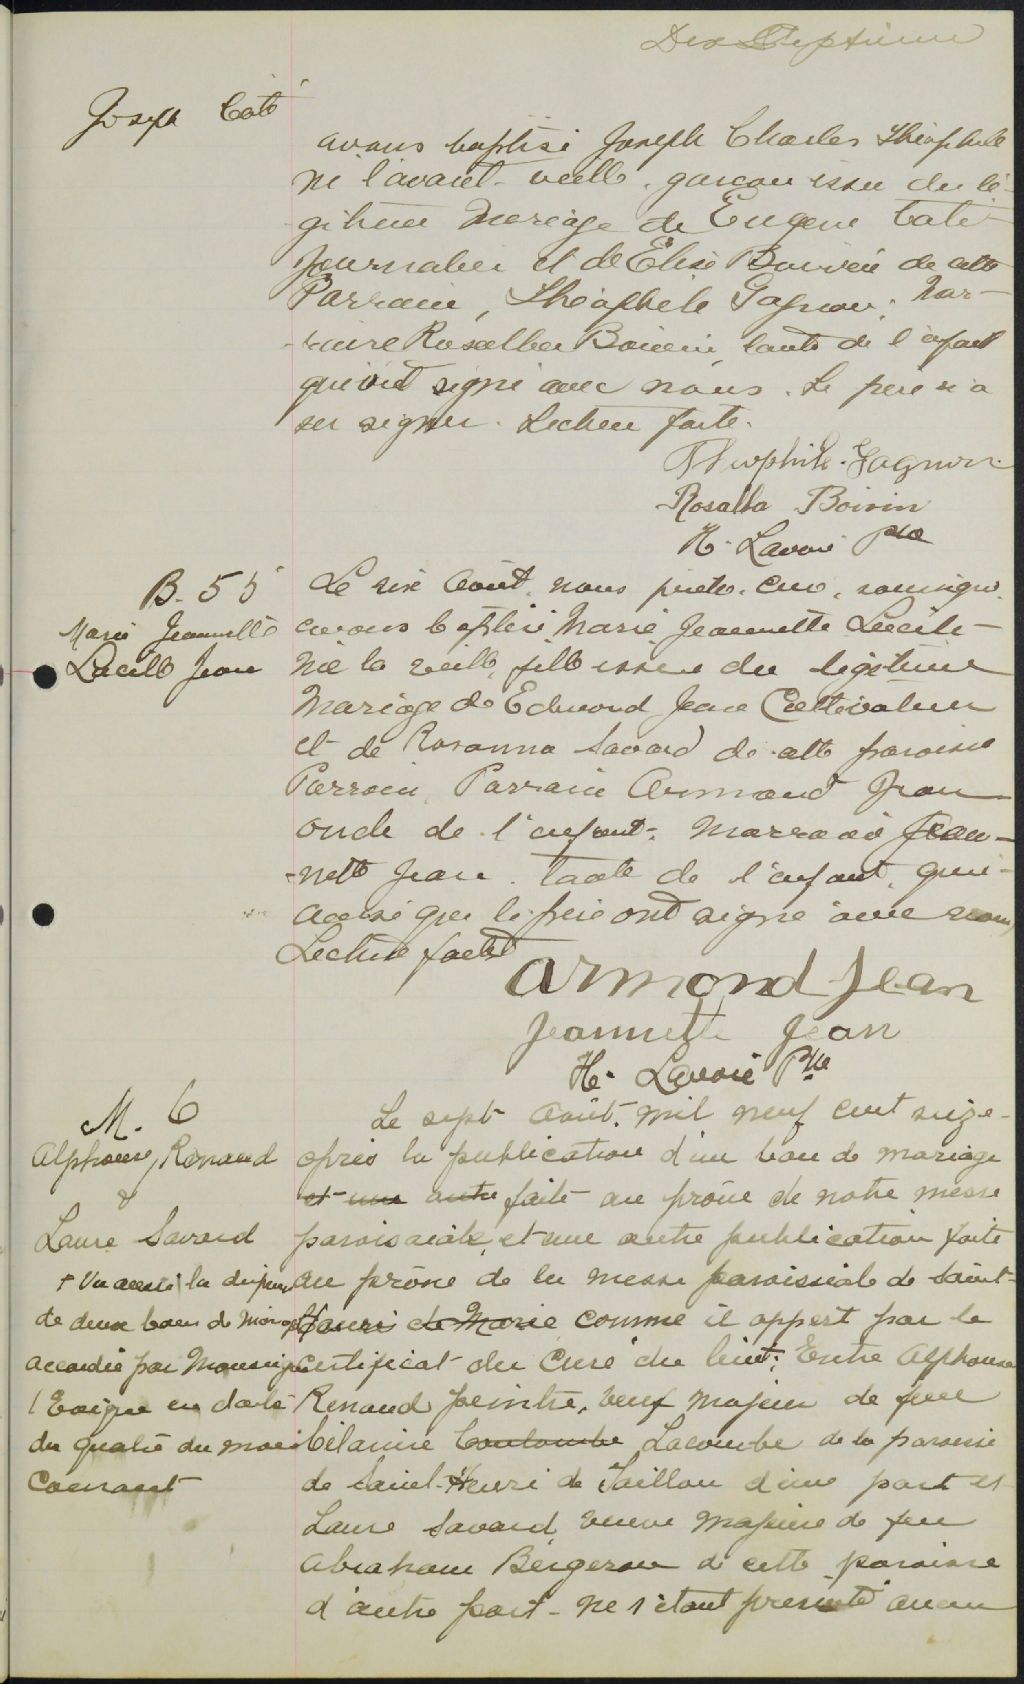 Dix Septième
Joseph Coté
avons baptisé Joseph Charles Théophile
né l'avant-veille, garçon issu du lé-
gitime Mariage de Eugène Coté
Journalier et de Elise Boivin de cette
Parrain, Théophile Gagnon; Mar-
raine Rosalba Boivin, tante de l'enfant
qui ont signé avec nous. Le père n'a
su signer. Lecture faite.
Theophile Gagnon
Rosalba Boivin
H. Lavoie Ptre
B. 55
Marie Jeannette
Lucille Jean
Le six Août, nous prêtre, curé, soussigné
avons baptisé Marie Jeannette
Née la veille, fille issue du légitime
Mariage de Edmond Jean Cultivateur
et de Rosanna Savard de cette paroisse
Parrain, Parrain Armand Jean
oncle de l'enfant; Marraine Jean-
-nette Jean, tante de l'enfant, qui
ainsi que le père ont signé avec nous,
Lecture faite
Armond Jean
Jeannette Jean
H. Lavoie Ptre
M. 6
Alphonse Renaud
&
Laure Savard
+ Vu aussi la dispense
de deux bans de Mariage
accordée par Monseigneur
l'Evêque en date
du quatre du mois
Courant
Le sept Août, mil neuf cent seize
après la publication d'un ban de mariage
et une autre faite au prône de notre messe
paroissiale, et une autre publication faite
au prône de la messe paroissiale de Saint-
Henri de Marie comme il appert par le
Certificat du Curé du lieu; Entre Alphonse
Renaud peintre, veuf Majeur de feue
Célanire Coulombe Lacombe de la paroisse
de Saint-Henri de Taillon d'une part et
Laure Savard, veuve Majeure de feu
Abraham Bergeron de cette paroisse
d'autre part - ne s'étant présenté aucun